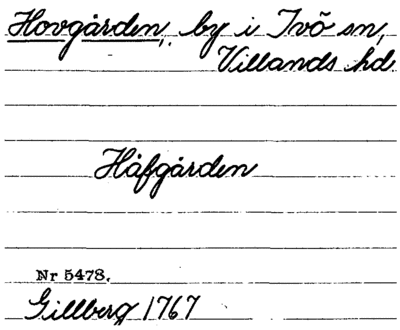 Hovgården, by i Ivö sn,
Villands hd.
Håfgården
Nr 5478.
Gillberg 1767